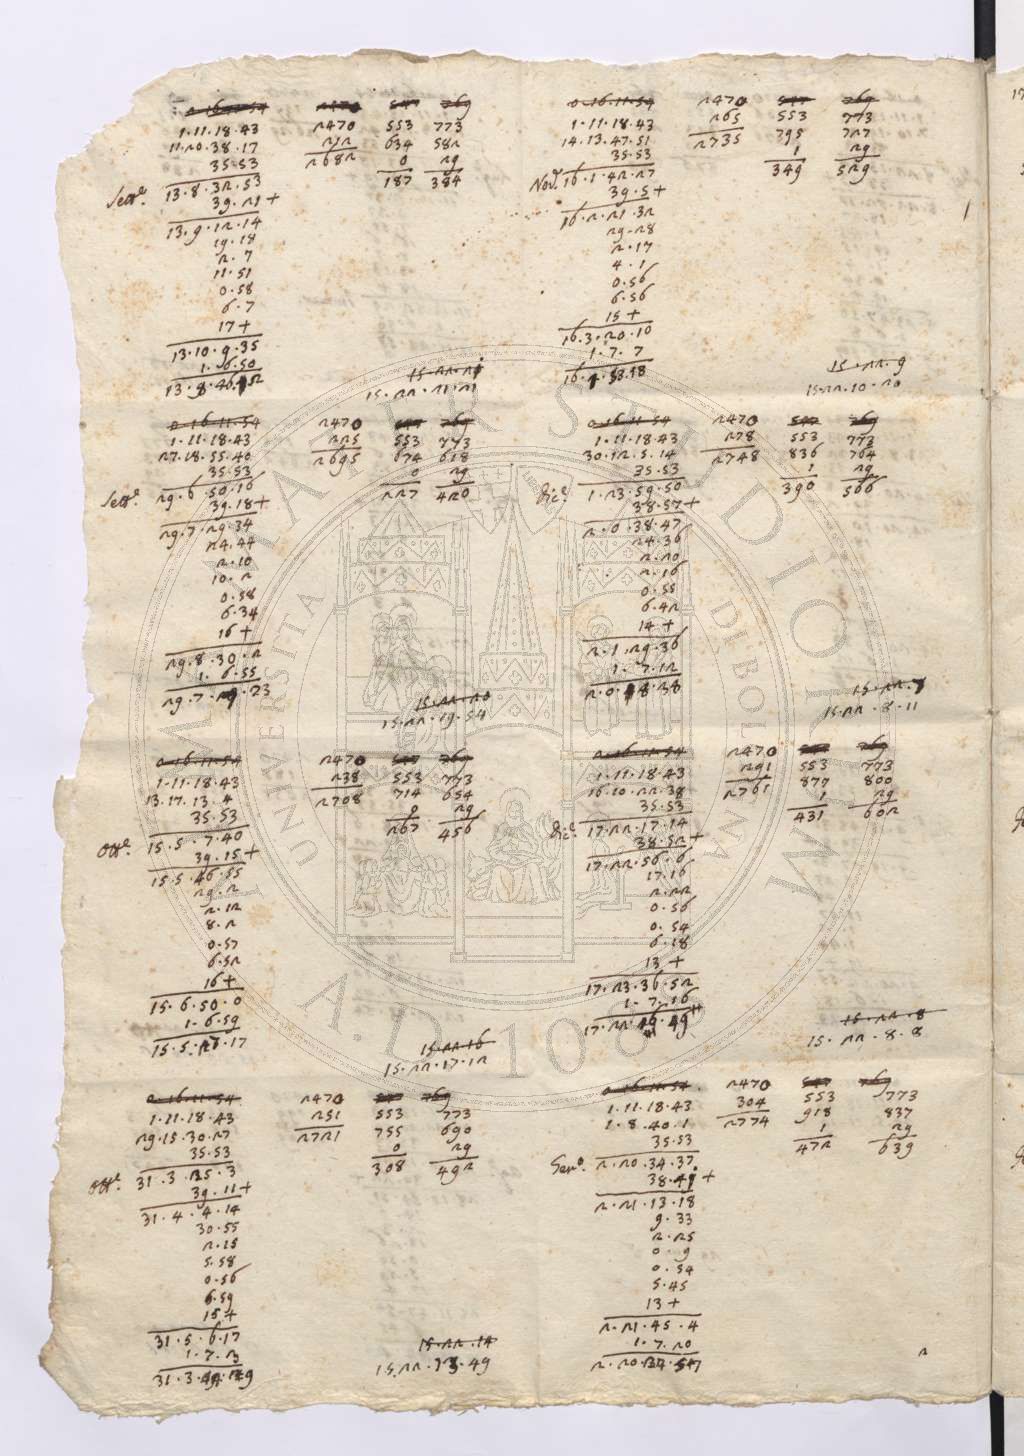 2.16.11.54 2470 547 769
1.11.18.43 2470 553 773
11.20.38.17 212 634 582
35.53 2682 0 29
Sett.e 13.8.32.53 187 384
39.21+
13.9.12.14
19.18
2.7
11.51
0.58
6.7
17+
13.10.9.35
1.6.50
13.8.46.12
15.22.21
15.22.21.21
0.16.11.54 2470 547 769
1.11.18.43 265 553 773
14.13.47.51 2735 795 727
35.53 1 29
Nov.e 16.1.42.27 349 529
39.5+
16.2.21.32
29.28
2.17
4.1
0.56
6.56
15+
16.3.20.10
1.7.7
53.18
15.22.9
15.22.10.20
0.16.11.54 2470 547 769
1.11.18.43 225 553 773
27.18.55.40 2695 674 618
35.53 0 29
Sett.e 29.6.50.16 227 420
39.18+
29.7.29.34
24.44
2.10
10.2
0.58
6.34
16+
29.8.30.2
1.6.55
29.7.29.23
15.22.20
15.22.19.54
0.16.11.54 2470 547 769
1.11.18.43 278 553 773
30.12.5.14 2748 836 764
35.53 1 29
Dic.e 1.23.59.50 390 566
38.57+
2.0.38.47
24.36
2.20
2.16
0.55
6.42
14+
2.1.29.36
1.7.12
2.0.18.38
15.22.7
15.22.8.11
0.16.11.54 2470 547 769
1.11.18.43 238 553 773
13.17.13.4 2708 714 654
35.53 0 29
Ott.e 15.5.7.40 267 456
39.15+
15.5.46.55
29.2
2.12
8.2
0.57
6.52
16+
15.6.50.0
1.6.59
15.5.26.17
15.22.16
15.22.17.12
0.16.11.54 2470 547 769
1.11.18.43 291 553 773
16.10.22.38 2761 877 800
35.53 1 29
Dic.e 17.22.17.14 431 602
38.52+
17.22.56.6
17.16
2.22
0.56
0.54
6.18
13+
17.23.36.52
1.7.16
17.22.46.49
15.22.8
15.22.8.8
0.16.11.54 2470 547 769
1.11.18.43 251 553 773
29.15.30.27 2721 755 690
35.53 0 29
Ott.e 31.3.25.3 308 492
39.11+
31.4.4.14
30.55
2.15
5.58
0.56
6.59
15+
31.5.6.17
1.7.3
31.3.49.29
15.22.14
15.22.13.49
0.16.11.54 2470 547 769
1.11.18.43 304 553 773
1.8.40.1 2774 918 837
35.53 1 29
Gen.o 2.20.34.37 472 639
38.41+
2.21.13.18
9.33
2.25
0.9
0.54
5.45
13+
2.21.45.4
1.7.20
2.20.37.57
2